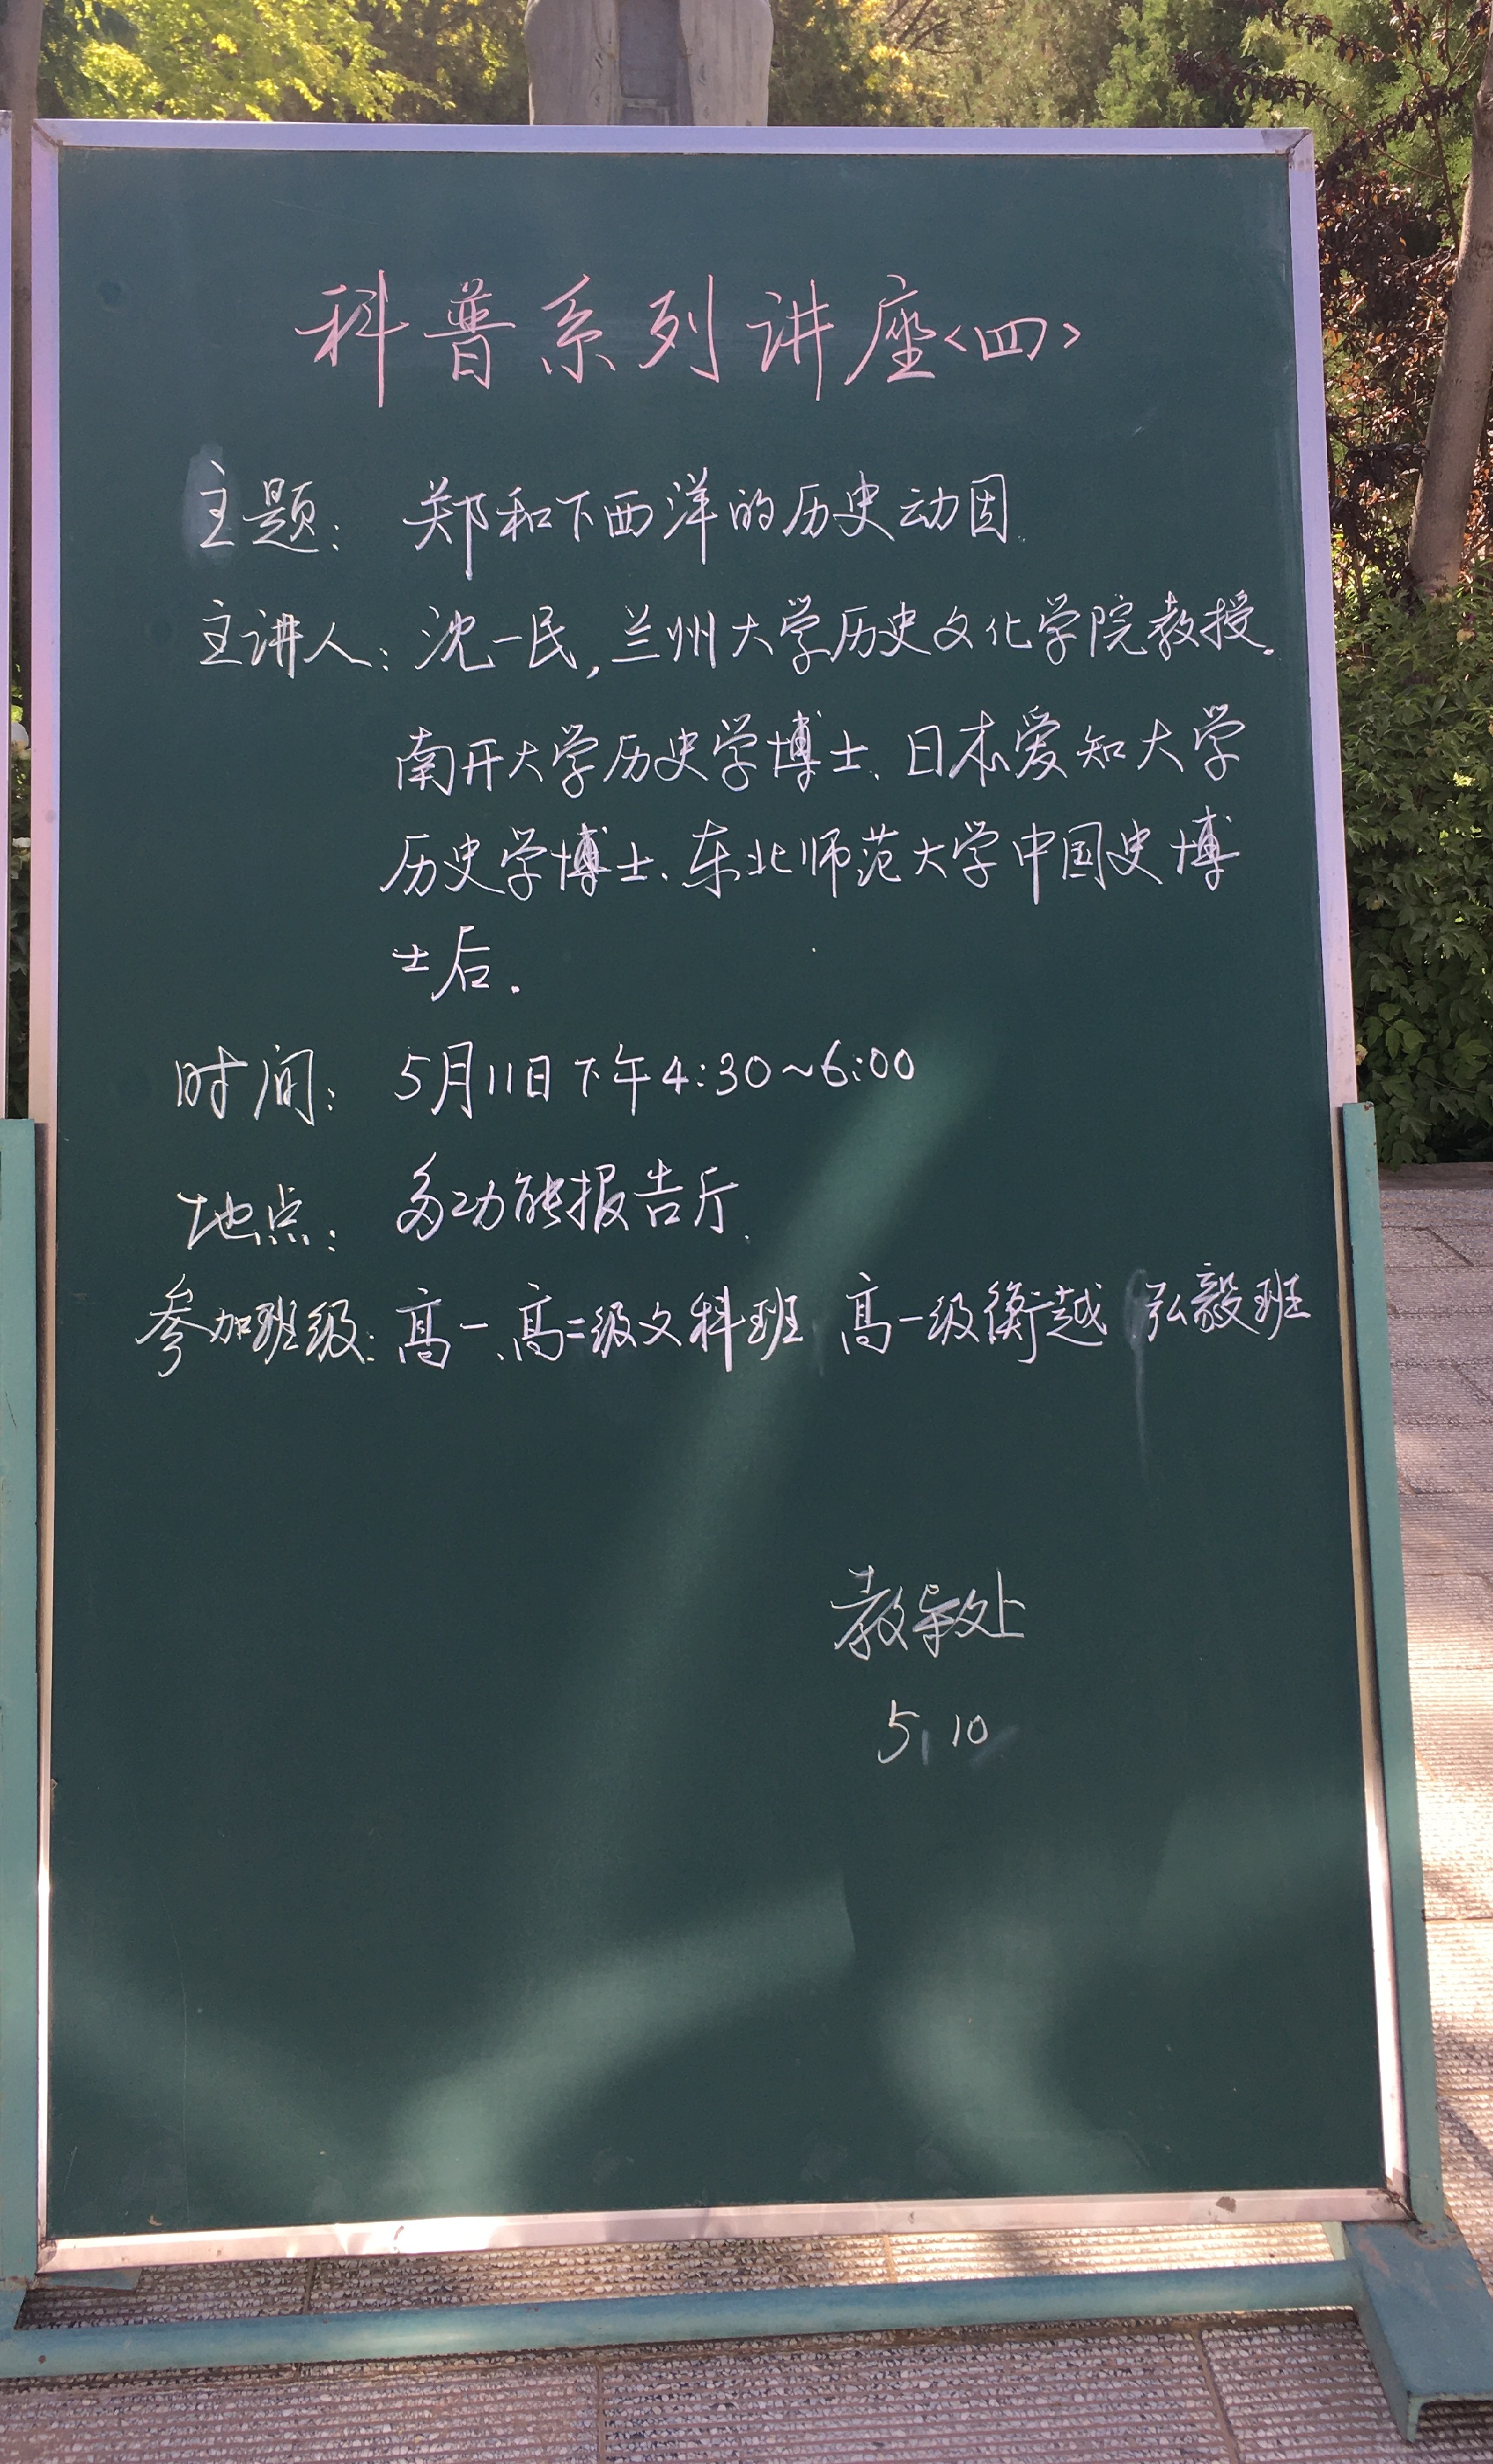 科普系列讲座<四>
主题：郑和下西洋的历史动因.
主讲人：沈一民,兰州大学历史文化学院教授.
南开大学历史学博士、日本爱知大学
历史学博士、东北师范大学中国史博
士后.
时间：5月11日下午4:30~6:00
地点：多功能报告厅.
参加班级：高一、高二级文科班 高一级衡越 弘毅班
教务处
5.10